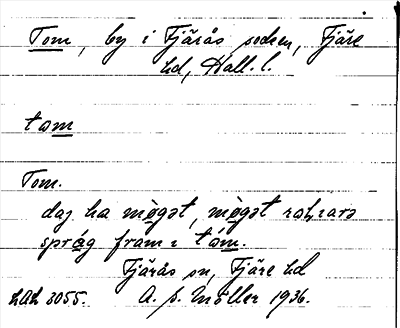 Tom, by i Fjärås socken, Fjäre
hd, Hall. l.
tom
Tom.
daj ha mögət, mögət
språg fram i tåm.
Fjärås sn, Fjäre hd
LAL 3055. A. P. Möller 1936.